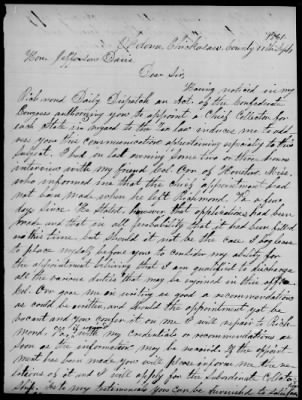 1861
Chickasaw County Miss Sept
Hon. Jefferson Davis
Dear Sir,
Having noticed in my
Richmond Daily Dispatch an Act of the Confederate
Congress authorizing you to appoint a Chief Collector for
each State in regard to the Tax law induces me to add
ress you this Communication appertaining especially to this
subject. I had on last evening some two or three hours
interview with my friend Col. Orr of Houston, Miss.
who informed me that the Chief appointment had
not been made when he left Richmond a few
days since. He stated, however, that applications had been
made and that in all probability that it had been filled
by this time. But should it not be the case I beg leave
to place myself before you to consider my ability for
the appointment believing that I am qualified to discharge
all the various duties that may be enjoined in this office
Col. Orr gave me in writing as good a recommendations
as could be written, and should the appointment yet be
vacant and you confer it on me I will repair to Rich
mond, Va. with my credentials or recommendations as
soon as the information may be received. If the appoint
ment has been made you will please inform me there
as soon and I will apply for the Subordinate Collector
Ship. As to my testimonials you can be furnished to